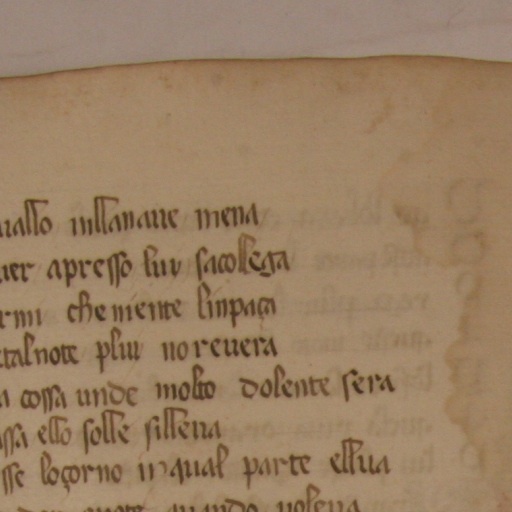 uallo inllanaue mena
uer apresso luy sacollega
rmi che niente linpaça
talnote pluy no reuera
a cossa unde molto dolente sera
assa ello solle silleua
sse loçorno inqual parte ellua
note quando uoleua